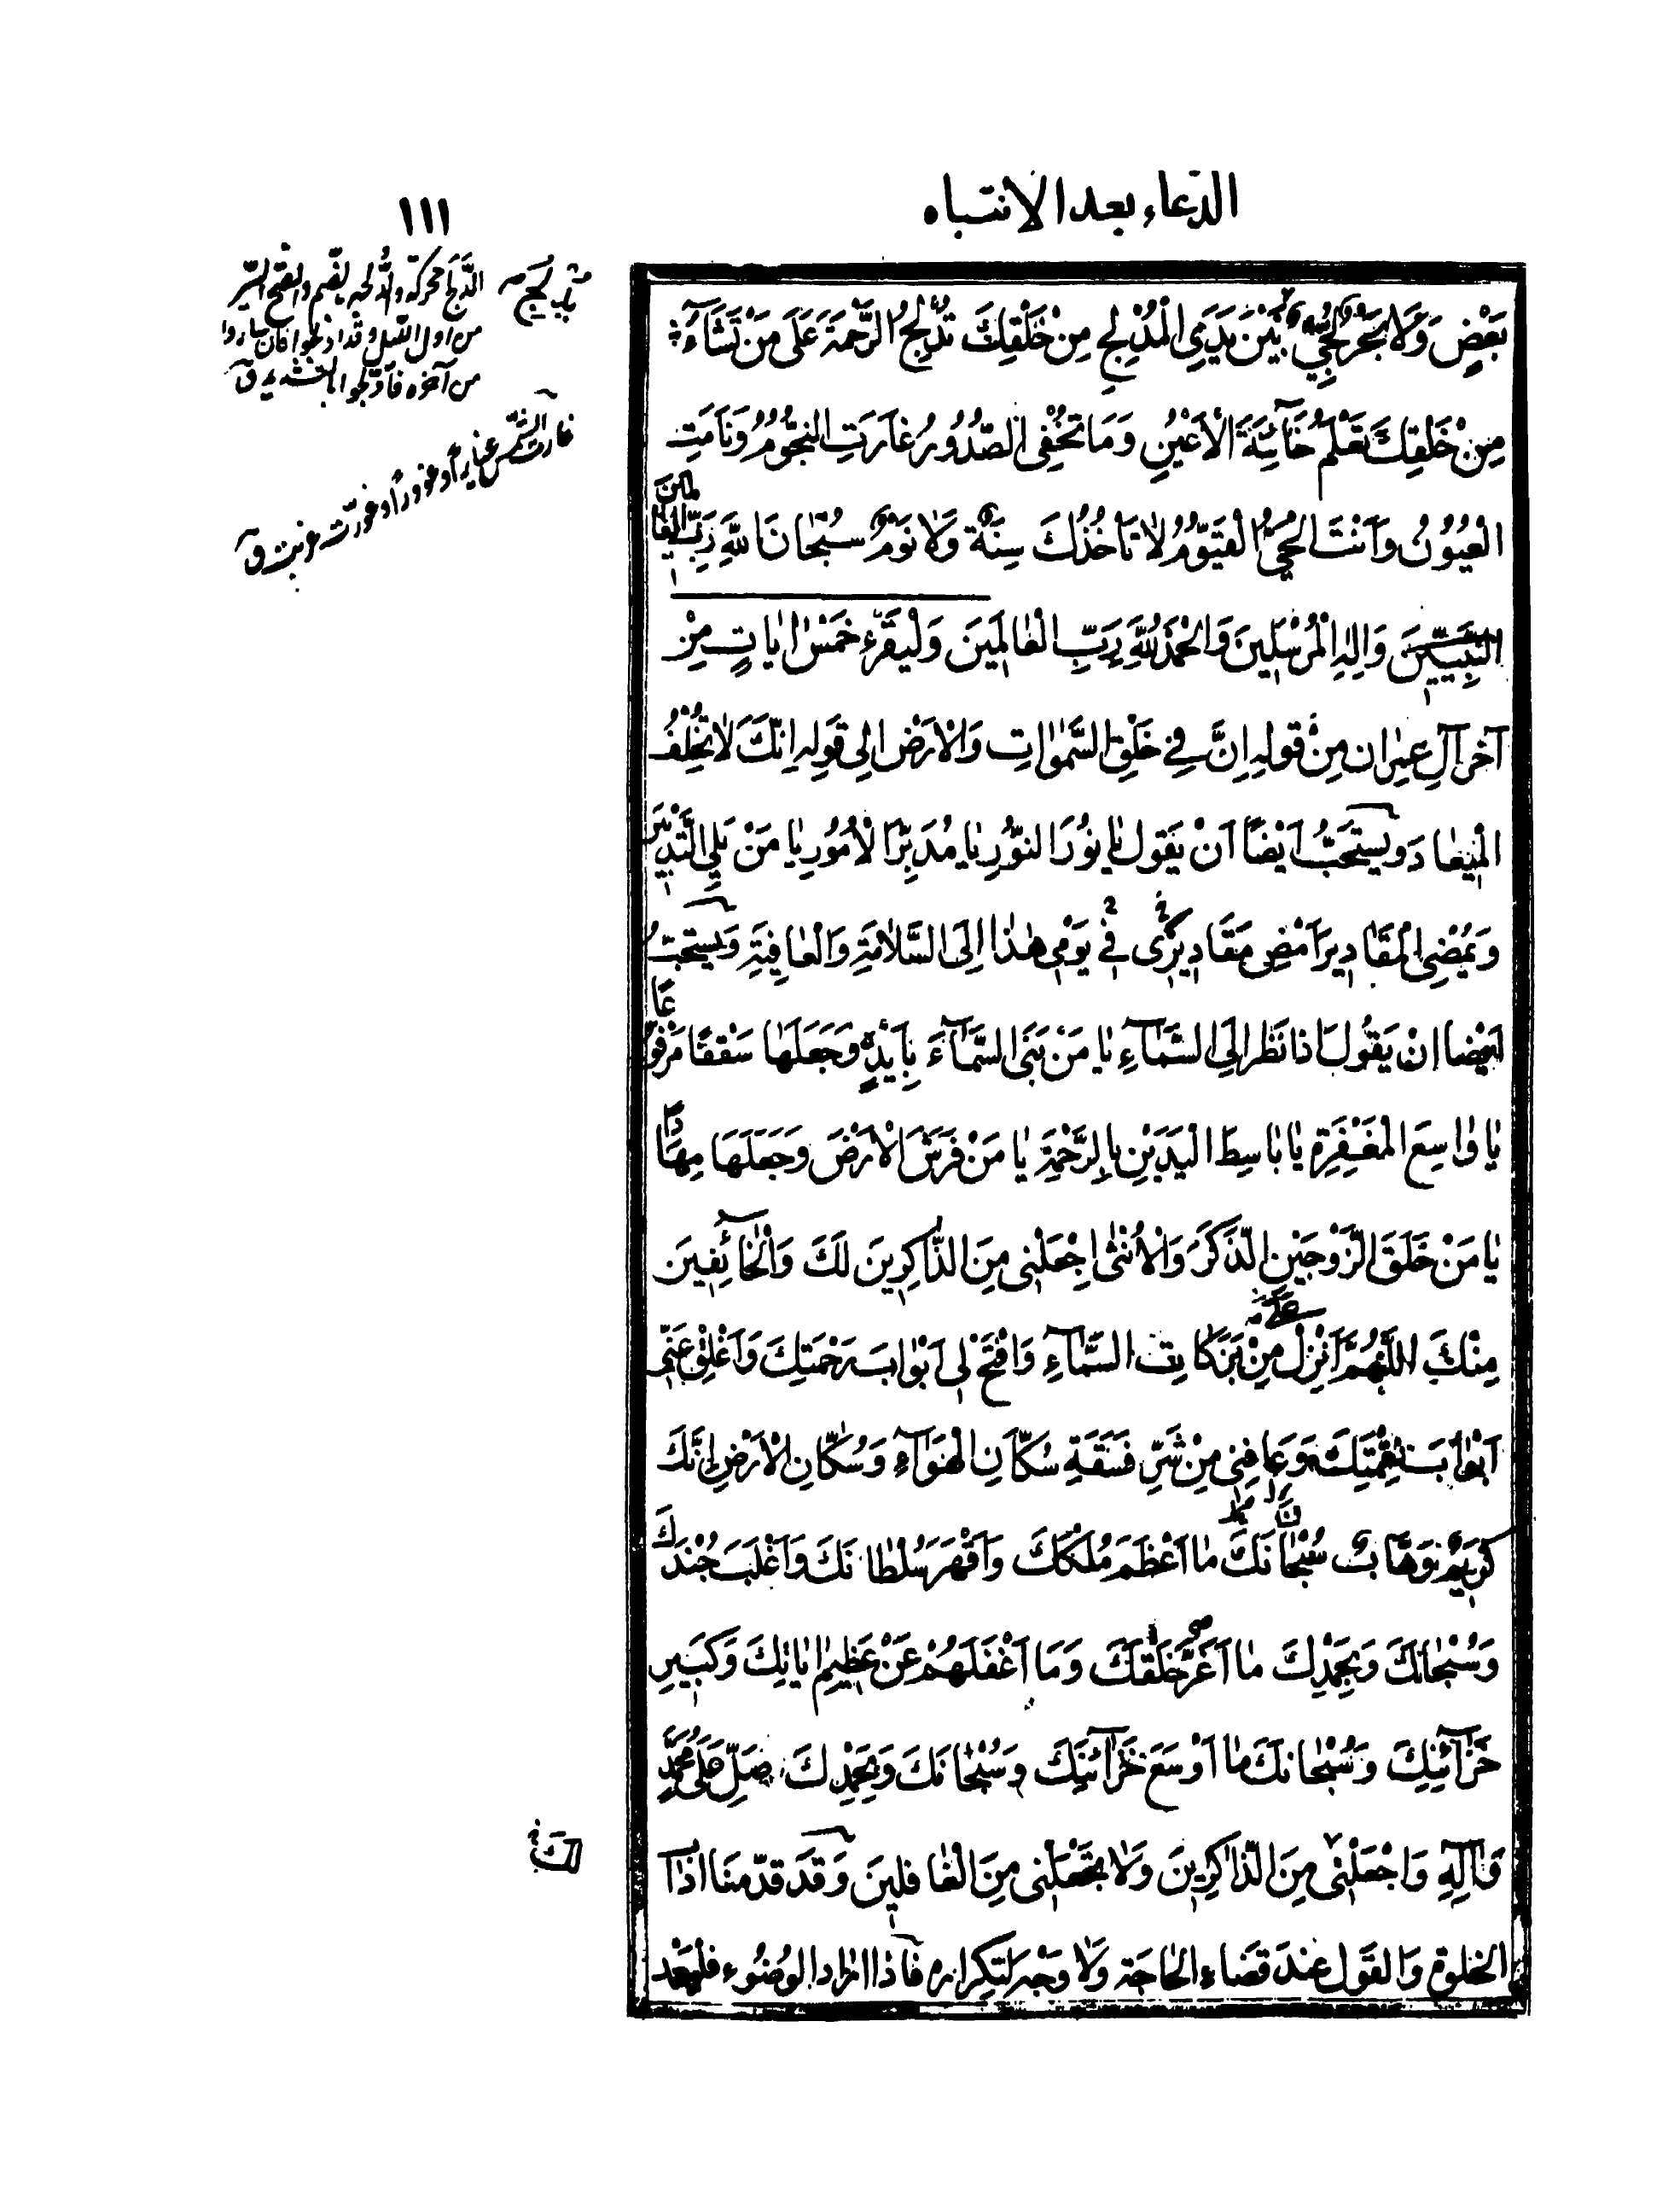 الدعاء بعد الانتباه
١١١
بَعْضٍ وَلَا بَحْرٌ لُجِّيٌّ بَيْنَ يَدَيِ الْمُدْلِجِ مِنْ خَلْقِكَ تُدْلِجُ الرَّحْمَةَ عَلَى مَنْ تَشَآءُ
مِنْ خَلْقِكَ تَعْلَمُ خَآئِنَةَ الْأَعْيُنِ وَمَا تُخْفِى الصُّدُورُ غَارَتِ النُّجُومُ وَنَامَتِ
الْعُيُونُ وَأَنْتَ الْحَيُّ الْقَيُّومُ لَا تَأْخُذُكَ سِنَةٌ وَلَا نَوْمٌ سُبْحَانَ اللّٰهِ رَبِّ الْعَالَمِينَ
النَّبِيِّينَ وَاِلٰهِ الْمُرْسَلِينَ وَالْحَمْدُ لِلّٰهِ رَبِّ الْعَالَمِينَ وَلْيَقْرَءْ خَمْسَ اٰيَاتٍ مِنْ
آخر آلِ عِمْرَان مِنْ قوله اِنَّ فِي خَلْقِ السَّمٰوَاتِ وَالْاَرْضِ اِلى قَوْلِه اِنَّكَ لَا تُخْلِفُ
الْمِيعَادَ وَيستَحَبُّ اَيْضًا اَنْ يَقُولَ يَا نُورَ النُّورِ يَا مُدَبِّرَ الْاُمُورِ يَا مَنْ يَلِي التَّدْبِيرَ
وَيُمْضِى الْمَقَادِيرَ اَمْضِ مَقَادِيرِى فِي يَوْمِي هٰذَا اِلَى السَّلَامَةِ وَالْعَافِيَةِ وَيستحبّ
اَيْضا اَنْ يَقُولَ اذا نَظَرَ اِلَى السَّمَآءِ يَا مَنْ بَنَى السَّمَآءَ بِاَيْدٍ وَجَعَلَهَا سَقْفًا مَرْفُوعًا
يَا وَاسِعَ الْمَغْفِرَةِ يَا بَاسِطَ الْيَدَيْنِ بِالرَّحْمَةِ يَا مَنْ فَرَشَ الْاَرْضَ وَجَعَلَهَا مِهَادًا
يَا مَنْ خَلَقَ الزَّوْجَيْنِ الذَّكَرَ وَالْاُنْثٰى اِجْعَلْنِى مِنَ الذَّاكِرِينَ لَكَ وَالْخَآئِفِينَ
مِنْكَ اللّٰهُمَّ اَنْزِلْ مِنْ بَرَكَاتِ السَّمَآءِ وَافْتَحْ لِي اَبْوَابَ رَحْمَتِكَ وَاَغْلِقْ عَنِّى
اَبْوَابَ نِقْمَتِكَ وَعَافِنِى مِنْ شَرِّ فَسَقَةِ سُكَّانِ الْهَوَآءِ وَسُكَّانِ الْاَرْضِ اِنَّكَ
كَرِيمٌ وَهَّابٌ سُبْحَانَكَ مَا اَعْظَمَ مُلْكَكَ وَاَقْهَرَ سُلْطَانَكَ وَاَغْلَبَ جُنْدَكَ
وَسُبْحَانَكَ وَبِحَمْدِكَ مَا اَغَرَّ خَلْقَكَ وَمَا اَغْفَلَهُمْ عَنْ عَظِيمِ اٰيَاتِكَ وَكَبِيرِ
خَزَآئِنِكَ وَسُبْحَانَكَ مَا اَوْسَعَ خَزَآئِنَكَ وَسُبْحَانَكَ وَبِحَمْدِكَ صَلِّ عَلَى مُحَمَّدٍ
وَاٰلِهِ وَاجْعَلْنِى مِنَ الذَّاكِرِينَ وَلَا تَجْعَلْنِى مِنَ الْغَافِلِينَ وَقَد قدّمنَا اذآ
الخلوة وَالقَول عِندَ قضَاءِ الحَاجَة وَلَا وَجْه لتكراره فَاذا اراد الوضُوء فليَعْد
الدَّلج محركة والدُّلجة بالضم والفتح السير
من اول الليل وقد ادلجوا فان ساروا
من آخره فادّلجوا بالتشديد ق
غارت الشمس غيارًا وغؤورًا وغوّرت غربت ق